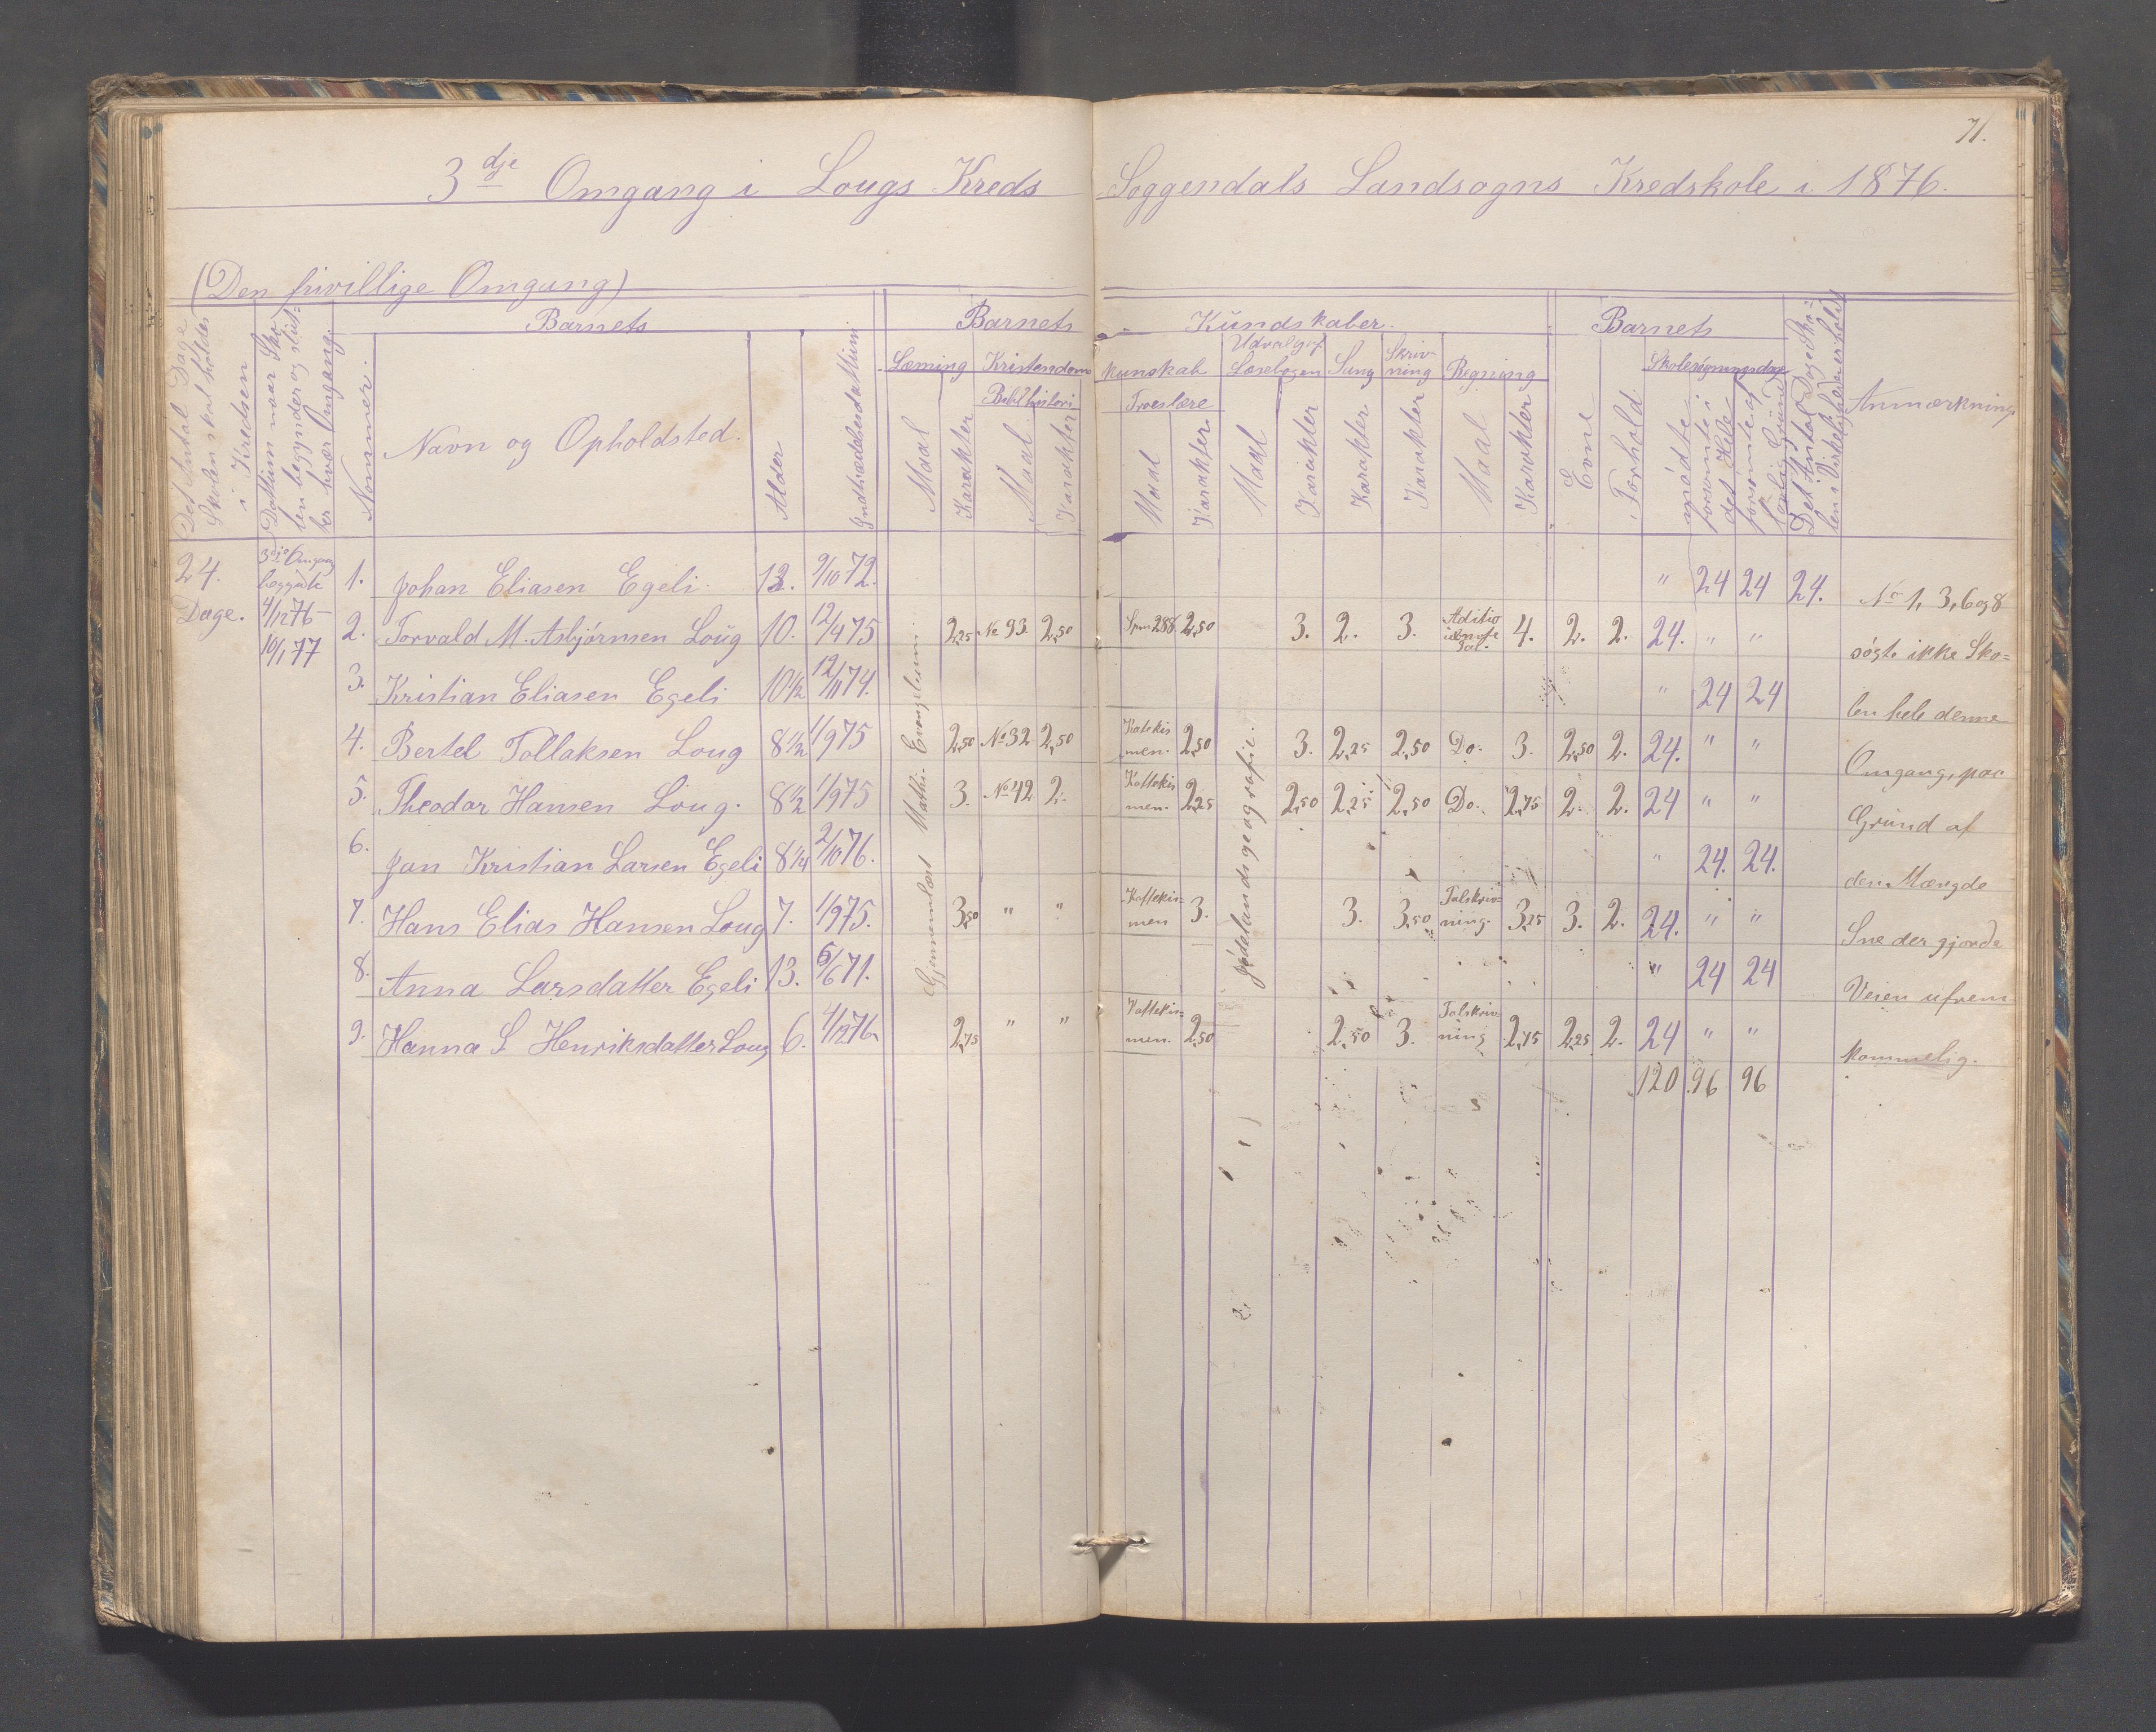 71.
3dje Omgang i Lougs Kreds Soggendals Landsogns Kredskole i 1876.
(Den frivillige Omgang)
Det Antal Dage Skolen skal holdes i Kredsen
Dattum naar Skolen begynder og slutter hvær Omgang.
Barnets
Nommer.
Navn og Opholdsted.
Alder
Indtrædelsesdattum
Barnets Kundskaber.
Læsning
Maal
Karakter
Kristendoms kunskab
Bibelhistori
Maal
Karakter
Troeslære
Maal
Karakter.
Udvalg af Læsebogen
Maal
Karakter
Sang
Karakter
Skrivning
Karakter
Regning
Maal
Karakter
Barnets
Evne
Forhold.
Skolesøgningsdage
mødte
forsømte i det Hele
forsømte af Grund
Det Antal Dage Skolen i Virkeligheden er holdt
Anmærkning.
24. Dage.
3die Omgang begynte 4/12 76 - 10/1 77
Gjennemlæst Mathæi Evangelium.
Jødelandsgeografie.
1. Johan Eliasen Egeli 13. 9/10 72. " 24 24 24.
2. Torvald M. Asbjørnsen Loug 10. 12/4 75 2,25 No 93. 2,50 Spm 288 2,50 3. 2. 3. Aditio 4. 2. 2. 24. " "
3. Kristian Eliasen Egeli 10 1/2 12/11 74. " 24 24
4. Bertel Tollaksen Loug 8 1/2 1/9 75 2,50 No 32 2,50 Katekismen. 2,50 3. 2,25 2,50 Do. 3. 2,50 2. 24. " "
5. Theodor Hansen Loug. 8 1/2 1/9 75 3. No 42 2. Kattekismen. 2,25 2,50 2,25 2,50 Do. 2,75 2. 2. 24 " "
6. Jan Kristian Larsen Egeli 8 1/4 2/10 76. " 24. 24.
7. Hans Elias Hansen Loug 7. 1/9 75. 3,50 " " Kattekismen 3. 3. 3,50 Talskrivning. 3,25 3. 2. 24. " "
8. Anna Larsdatter Egeli 13. 6/6 71. " 24 24
9. Hanna S Henriksdatter Loug 6. 4/12 76 2,75 " " Kattekismen. 2,50 2,50 3. Talskrivning 2,75 2,25 2. 24 " "
120 96 96
No 1, 3, 6 og 8
søgte ikke Sko=
len hele denne
Omgang, paa
Grund af
den Mængde
Sne der gjorde
Veien ufrem
kommelig.